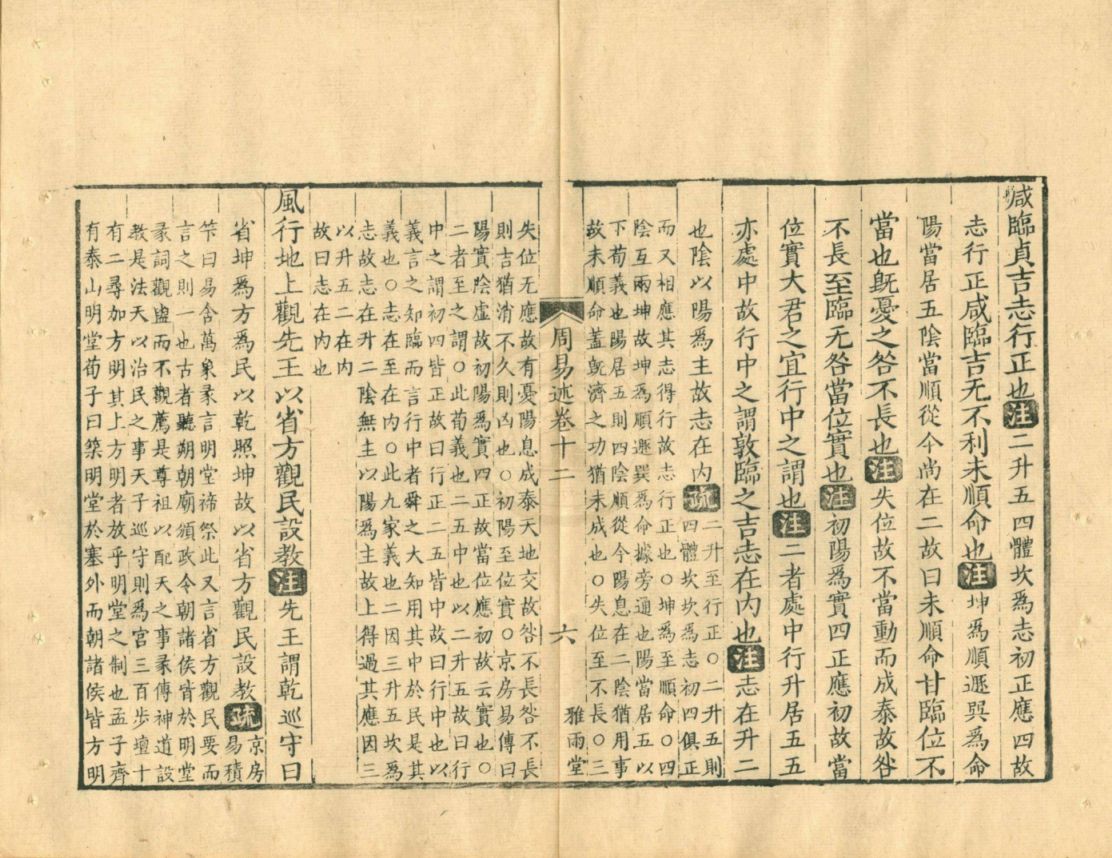 咸臨貞吉志行正也注二升五四體坎爲志初正應四故
志行正咸臨吉无不利未順命也注坤爲順遯巽爲命
陽當居五陰當順從今尚在二故曰未順命甘臨位不
當也旣憂之咎不長也注失位故不當動而成泰故咎
不長至臨无咎當位實也注初陽爲實四正應初故當
位實大君之宜行中之謂也注二者處中行升居五五
亦處中故行中之謂敦臨之吉志在内也注志在升二
也陰以陽爲主故志在内疏二升至行正○二升五則
四體坎坎爲志初四俱正
而又相應其志得行故志行正也○坤爲至命也○四
陰互兩坤故坤爲順遯巽爲命據旁通也陽當居五以
下荀義也陽居五則四陰順從今陽息在二陰猶用事
故未順命蓋旣濟之功猶未成也○失位至不長○三
雅雨堂
周易述卷十二
六
失位无應故有憂陽息成泰天地交故咎不長咎不長
則吉猶消不久則凶也○初陽至位實○京房易傳曰
陽實陰虛故初陽爲實四正故當位應初故云實也○
二者至之謂○此荀義也二五中也以二升五故曰行
中之謂初四皆正故曰行正二五皆中故曰行中也以
義言之知臨而言行中者舜之大知用其中於民是其
義也○志在至在内○此九家義也二因三升五坎爲
志故志在升二陰無主以陽爲主故上得過其應因三
以升五二在内
故曰志在内也
風行地上觀先王以省方觀民設教注先王謂乾巡守曰
省坤爲方爲民以乾照坤故以省方觀民設教疏京房
易積
筭曰易含萬象彖言明堂禘祭此又言省方觀民要而
言之則一也古者聽朔朝廟頒政令朝諸侯皆於明堂
彖詞觀盥而不觀薦是尊祖以配天之事彖傳神道設
教是法天以治民之事天子巡守則爲宮三百步壇十
有二尋加方明其上方明者放乎明堂之制也孟子齊
有泰山明堂荀子曰築明堂於塞外而朝諸侯皆方明